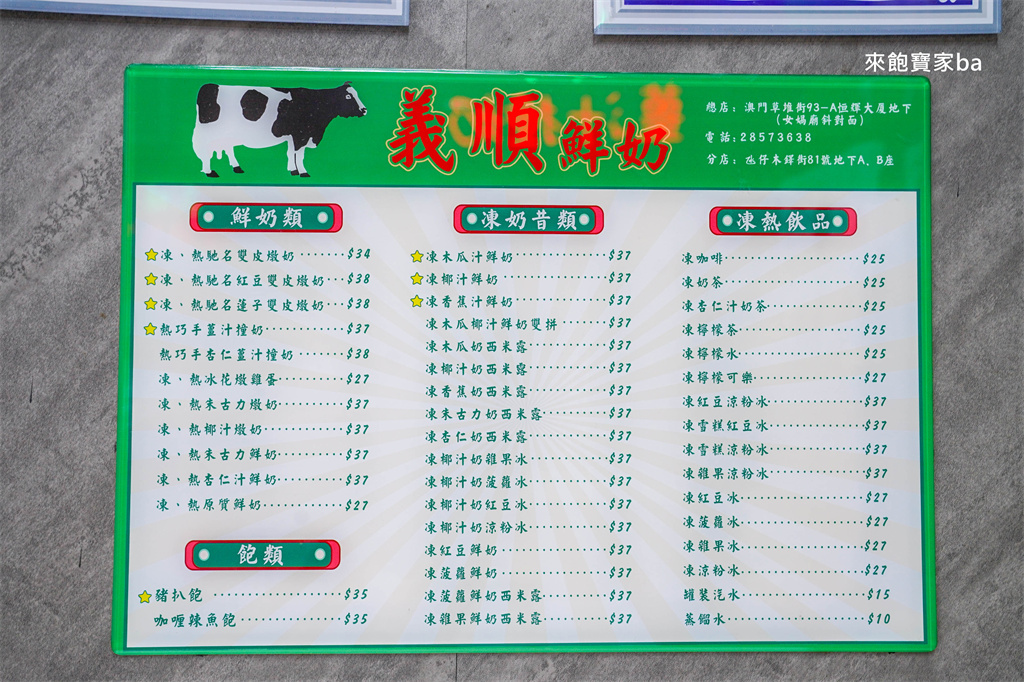 來飽寶家ba
義順鮮奶
總店：澳門草堆街93-A恒輝大厦地下
(女媧廟斜對面)
電話：28573638
分店：氹仔木鐸街81號地下A、B座
鮮奶類
凍、熱馳名雙皮燉奶 $34
凍、熱馳名紅豆雙皮燉奶 $38
凍、熱馳名蓮子雙皮燉奶 $38
熱巧手薑汁撞奶 $37
熱巧手杏仁薑汁撞奶 $38
凍、熱冰花燉雞蛋 $27
凍、熱朱古力燉奶 $37
凍、熱椰汁燉奶 $37
凍、熱朱古力鮮奶 $37
凍、熱杏仁汁鮮奶 $37
凍、熱原質鮮奶 $27
飽類
豬扒飽 $35
咖喱辣魚飽 $35
凍奶昔類
凍木瓜汁鮮奶 $37
凍椰汁鮮奶 $37
凍香蕉汁鮮奶 $37
凍木瓜椰汁鮮奶雙拼 $37
凍木瓜奶西米露 $37
凍椰汁奶西米露 $37
凍香蕉奶西米露 $37
凍朱古力奶西米露 $37
凍杏仁奶西米露 $37
凍椰汁奶雜果冰 $37
凍椰汁奶菠蘿冰 $37
凍椰汁奶紅豆冰 $37
凍椰汁奶涼粉冰 $37
凍紅豆鮮奶 $37
凍菠蘿鮮奶 $37
凍菠蘿鮮奶西米露 $37
凍雜果鮮奶西米露 $37
凍熱飲品
凍咖啡 $25
凍奶茶 $25
凍杏仁汁奶茶 $25
凍檸檬茶 $25
凍檸檬水 $25
凍檸檬可樂 $27
凍紅豆涼粉冰 $37
凍雪糕紅豆冰 $37
凍雪糕涼粉冰 $37
凍雜果涼粉冰 $37
凍紅豆冰 $27
凍菠蘿冰 $27
凍雜果冰 $27
凍涼粉冰 $27
罐裝汽水 $15
蒸餾水 $10